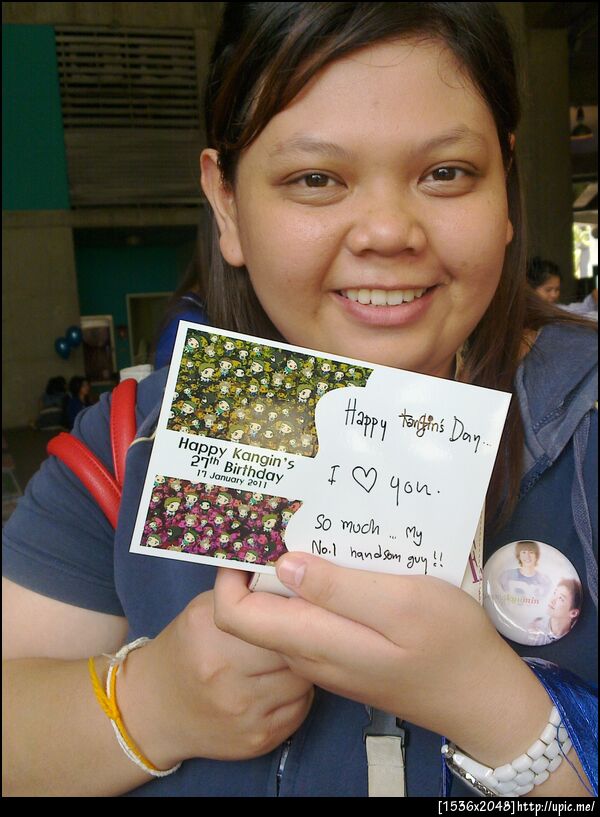 Happy Kangin's
27th Birthday
17 January 2011
Happy Kangin's Day...
I ♡ you.
so much ... My
No.1 handsom guy!!
[1536x2048]http://upic.me/